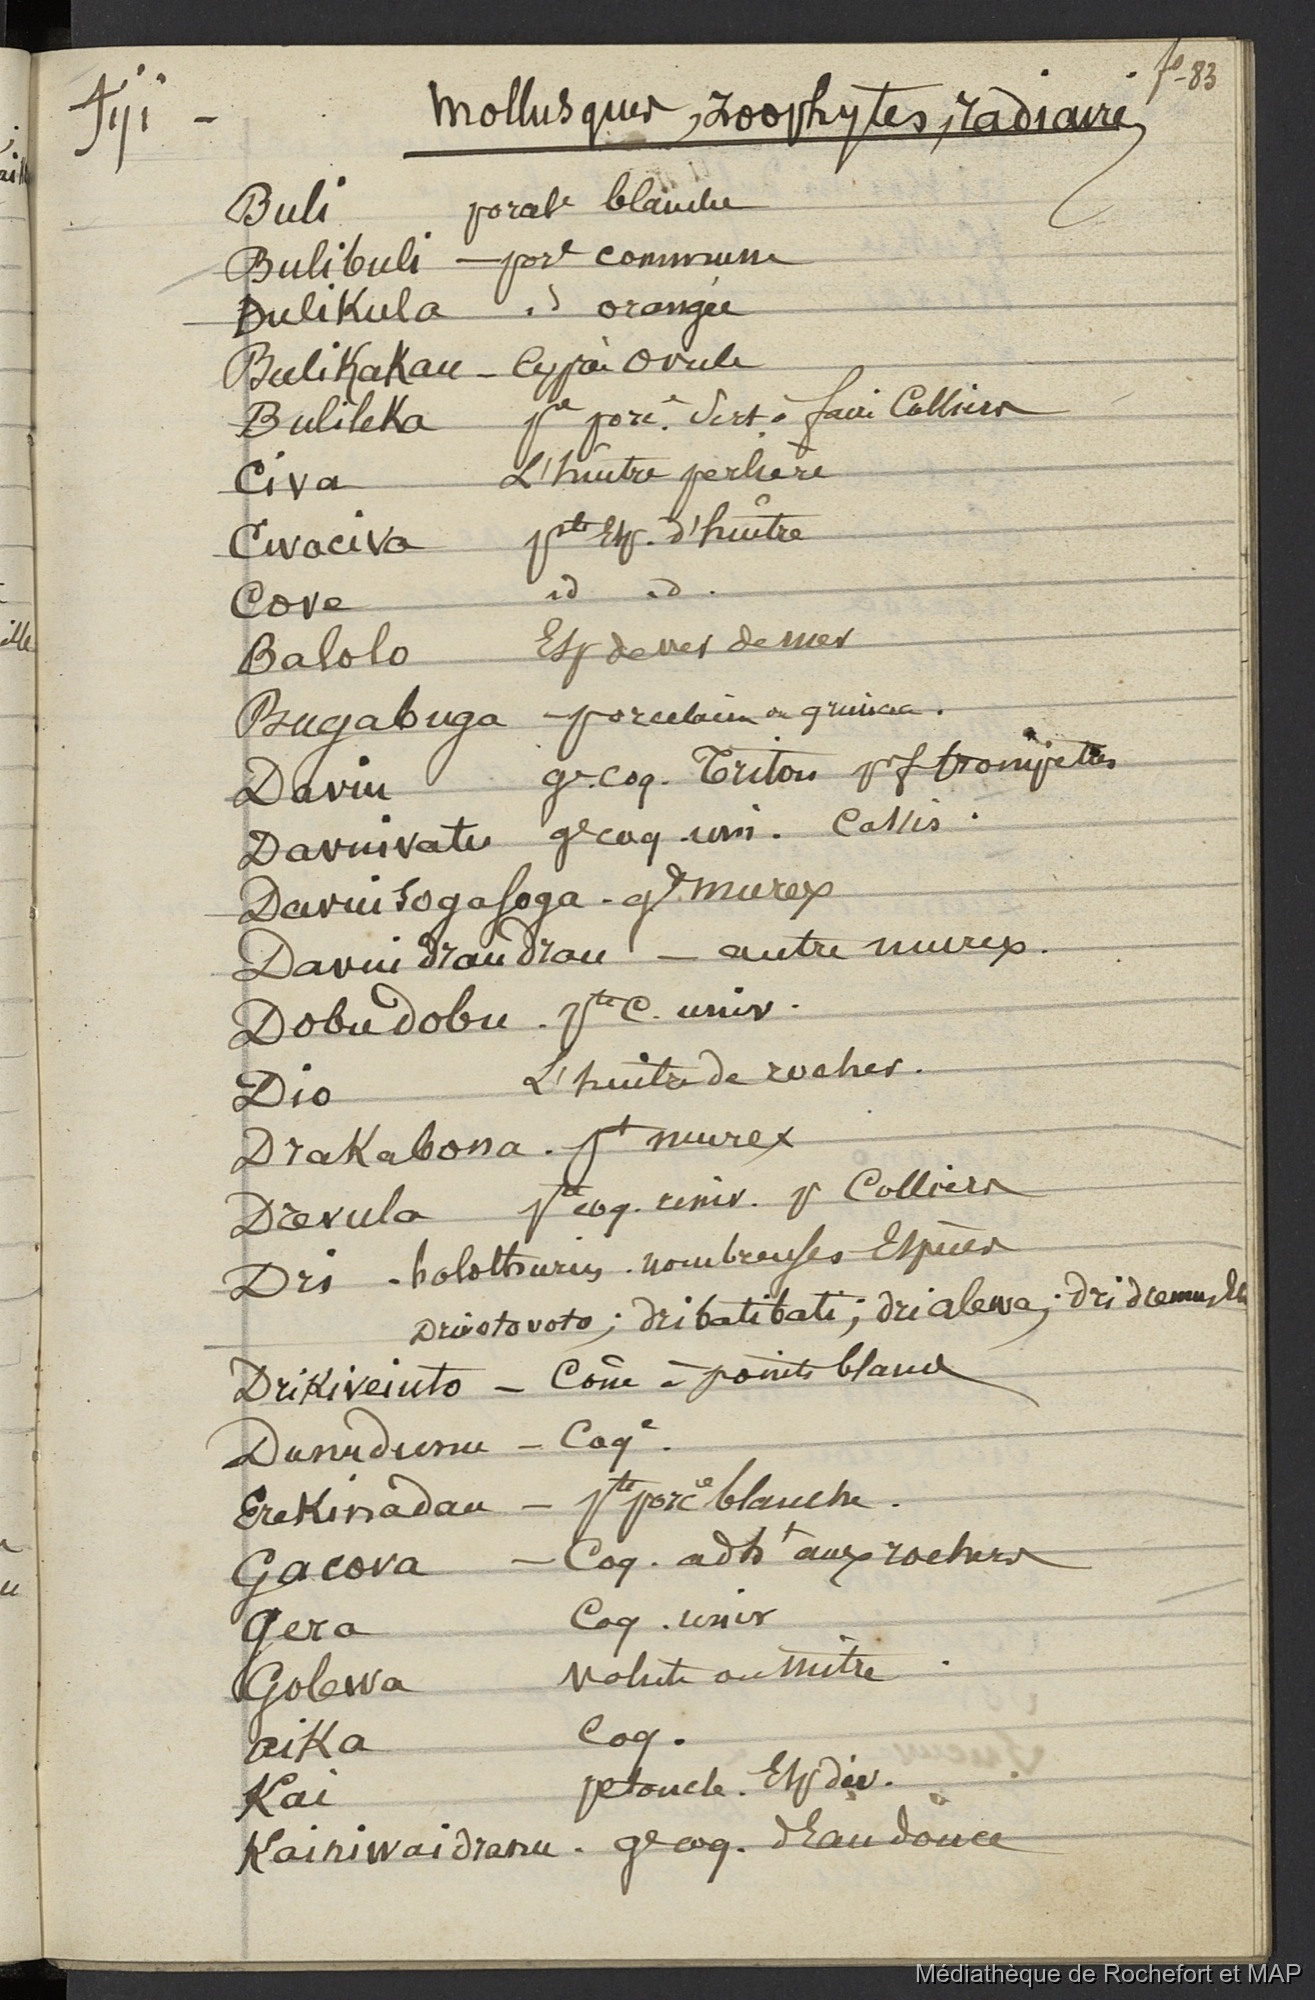 fo-83
Fiji - Mollusques, zoophytes, radiaires
Buli porce blanche
Bulibuli - porce commune
Bulikula id orangée
Bulikakau - Cyprée Ovule
Bulileka pe porce. sert à faire Colliers
Civa L'huître perlière
Civaciva pte Esp. d'huître
Cove id id.
Balolo Esp de ver de mer
Bugabuga - porcelaine ou
Davui ge. coq. Triton pr f trompettes
Davuivatu ge coq. univ. Cassis.
Davuisogasoga - gd murex
Davuidraudrau - autre murex.
Dobudobu. pte C. univ.
Dio L'huître de rocher.
Drakabona. pt murex
Drevula pte coq. univ. p Colliers
Dri - holothuries. nombreuses Espèces
Drivotovoto; dribatibati; drialewa; dridremu, Etc
Drikiveinto - Cône à points blancs
Dunudunu - Coqe.
Erekinadau - pte porce blanche.
Gacova - Coq. adht aux rochers
Gera Coq. univ
Golewa Volute ou mitre.
aika Coq.
Kai petoncle. Esp div.
Kainiwaidranu. ge coq. d'Eau douce
Médiathèque de Rochefort et MAP